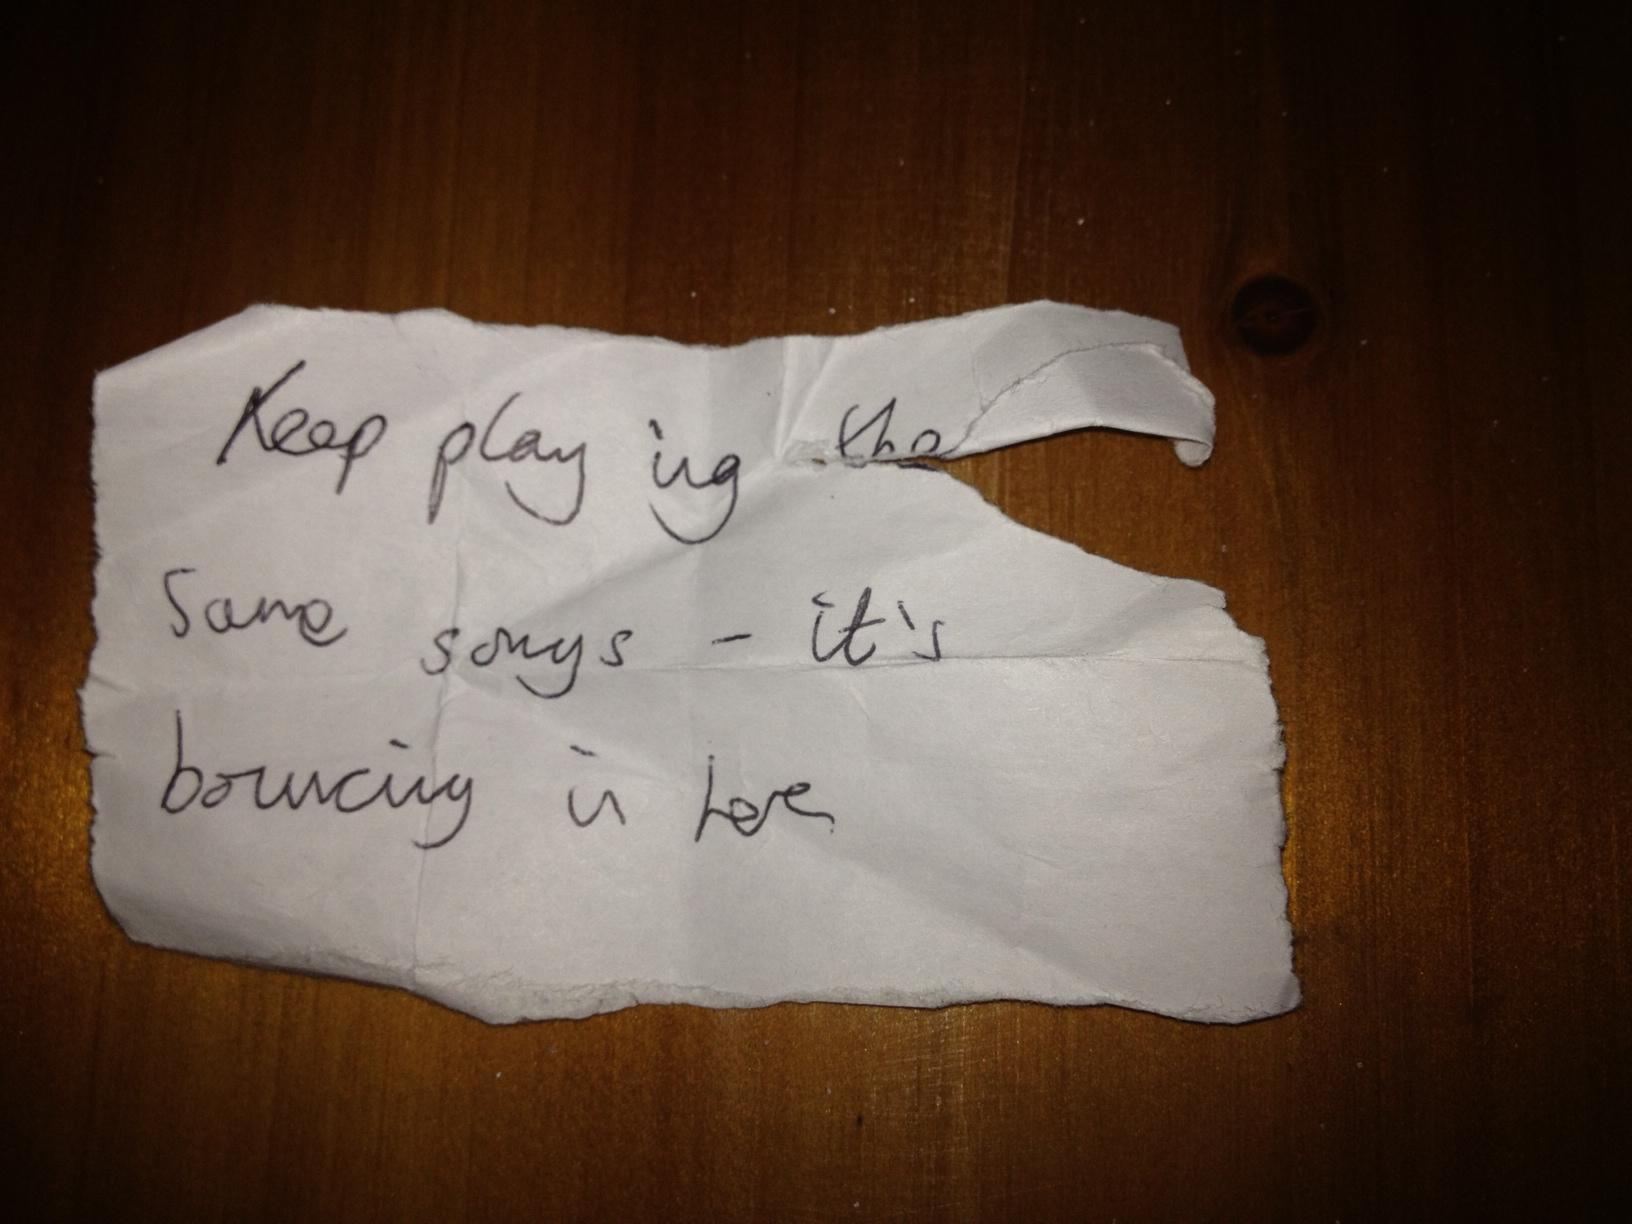 Keep playing the
Same songs - it's
bouncing in here